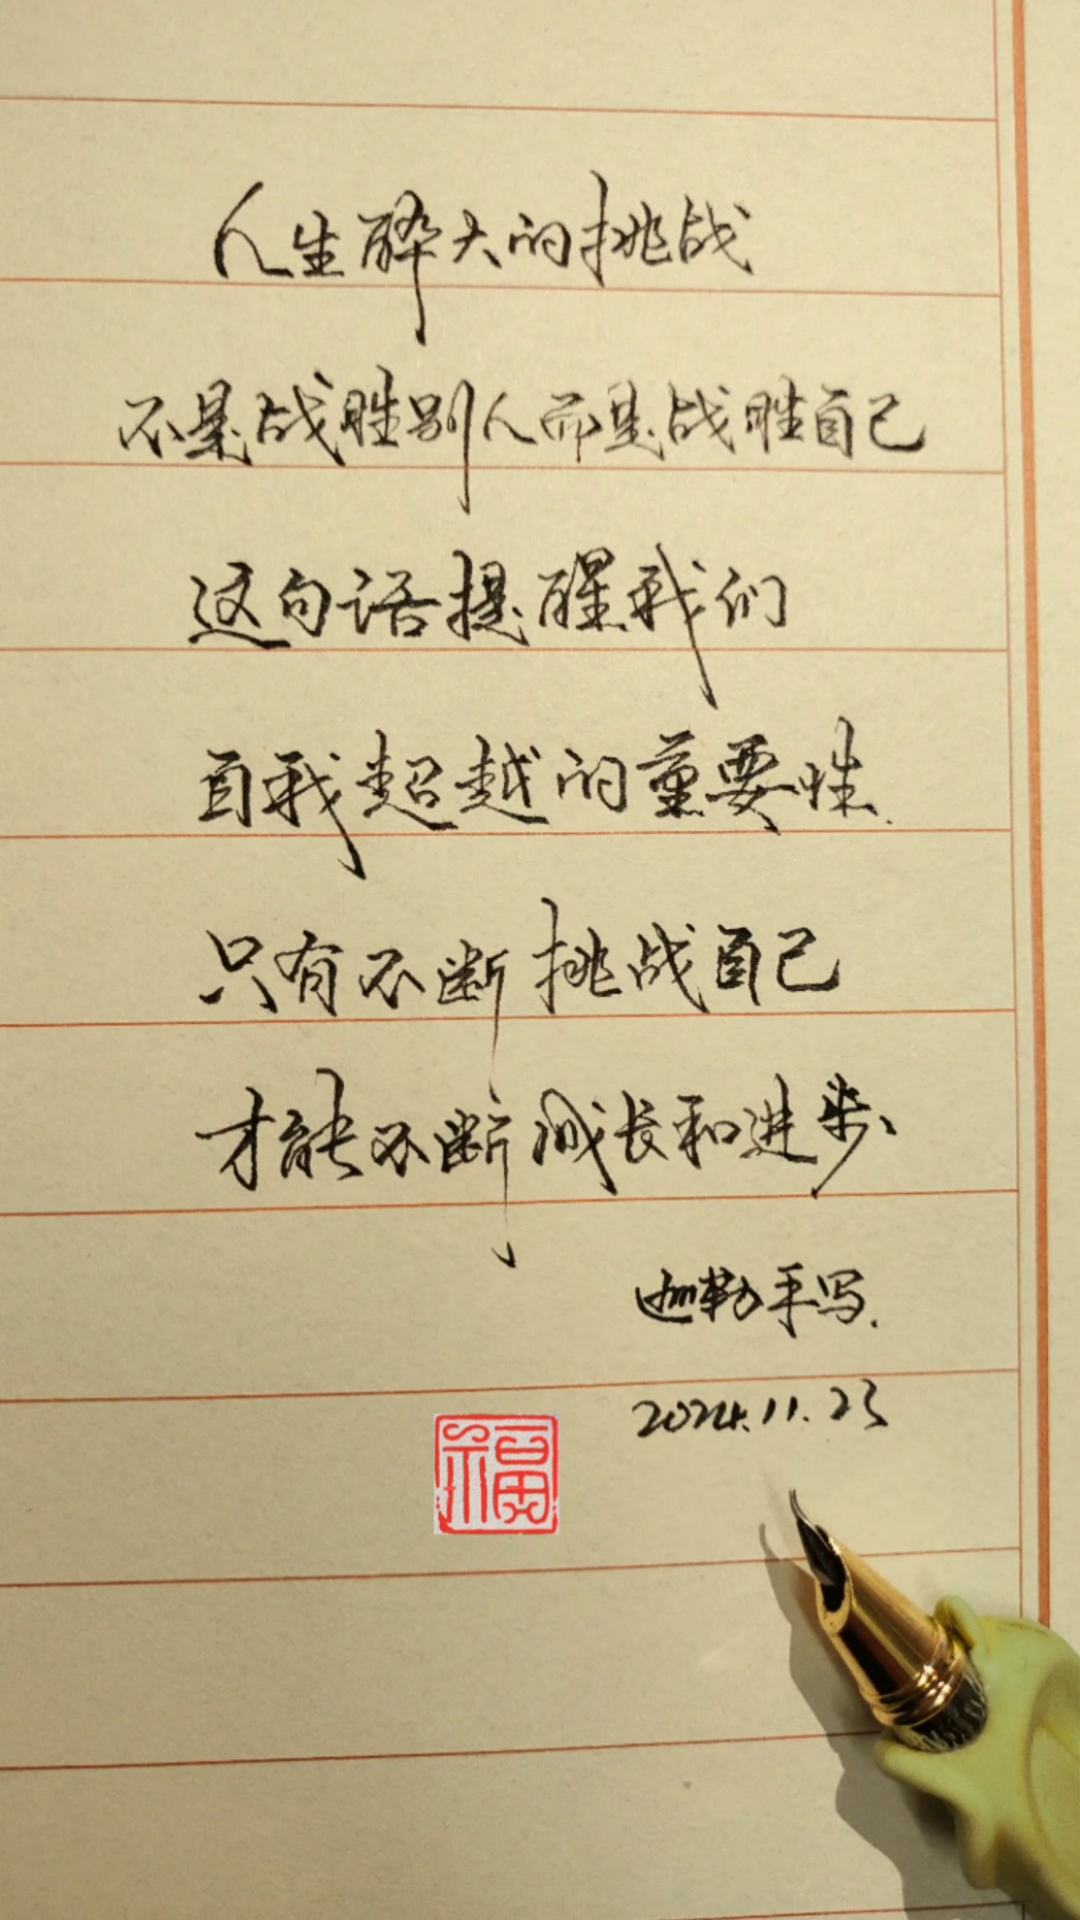 人生醉大的挑战
不是战胜别人而是战胜自己
这句语提醒我们
自我超越的重要性.
只有不断挑战自己
才能不断成长和进步
迦勒手写.
2024.11.23
福